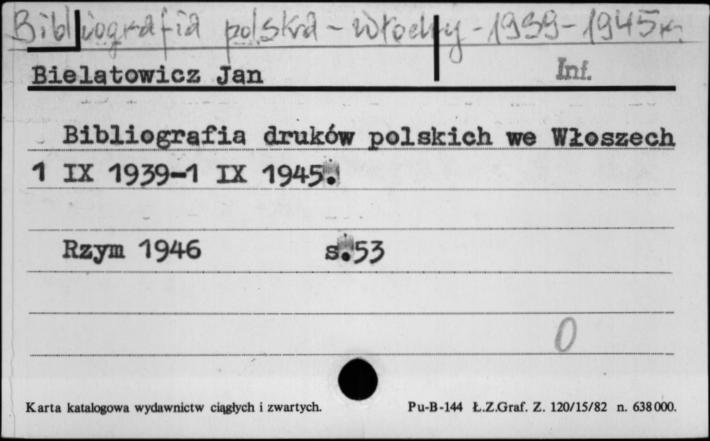 Bibliografia polska - Włochy - 1939-1945 r.
Bielatowicz Jan Inf.
Bibliografia druków polskich we Włoszech
1 IX 1939-1 IX 1945.
Rzym 1946 s.53
0
Karta katalogowa wydawnictw ciągłych i zwartych. Pu-B-144 Ł.Z.Graf. Z. 120/15/82 n. 638000.